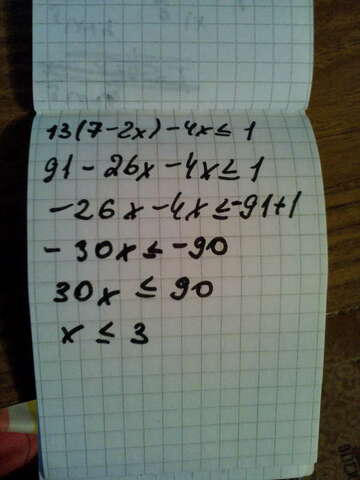 13(7-2x)-4x≤1
91-26x-4x≤1
-26x-4x≤-91+1
-30x≤-90
30x≤90
x≤3